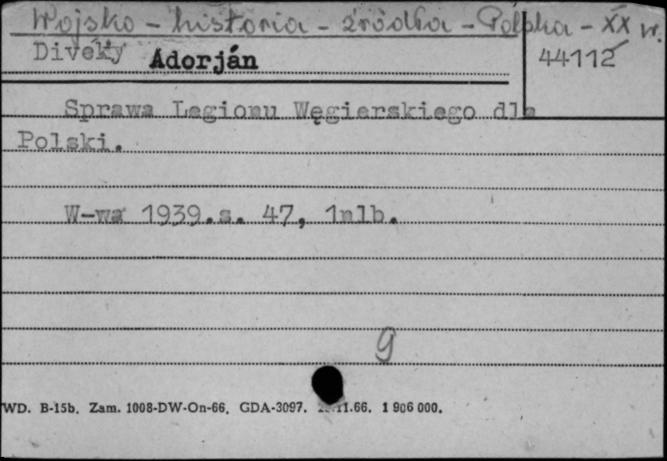 Wojsko - historia - źródła - Polska - XX w.
Diveky Adorján
44112
Sprawa Legionu Węgierskiego dla
Polski.
W-wa 1939.s. 47, 1nlb.
g
WD. B-15b. Zam. 1008-DW-On-66. GDA-3097. 11.66. 1 906 000.